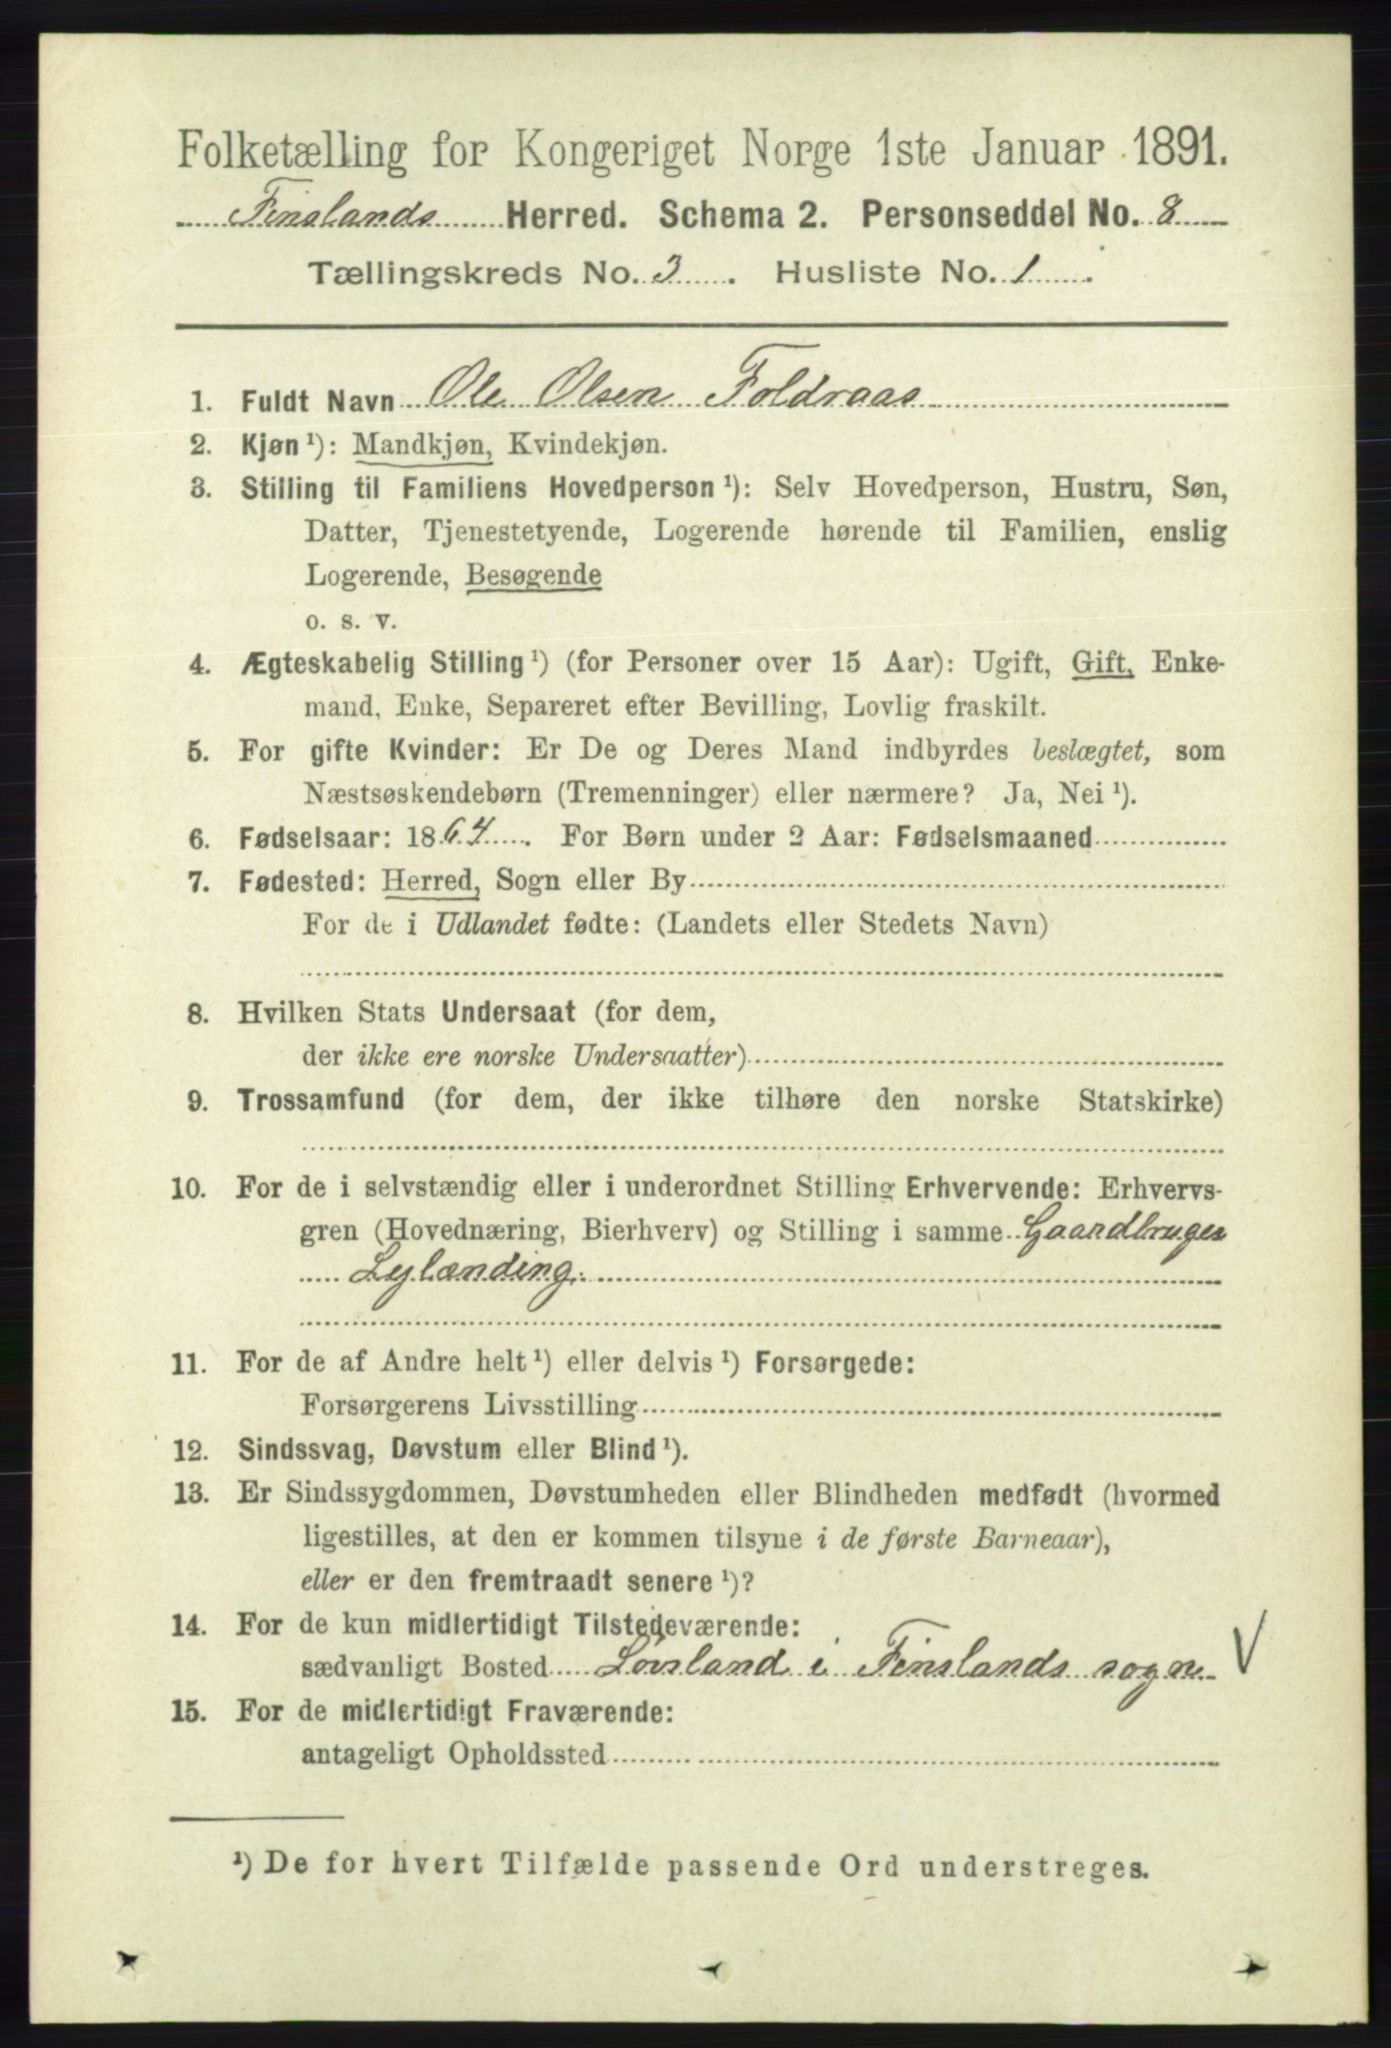 Folketælling for Kongeriget Norge 1ste Januar 1891.
Finslands Herred. Schema 2. Personseddel No. 8
Tællingskreds No. 3. Husliste No. 1.
1. Fuldt Navn Ole Olsen Foldraas
2. Kjøn ¹): Mandkjøn, Kvindekjøn.
3. Stilling til Familiens Hovedperson ¹): Selv Hovedperson, Hustru, Søn,
Datter, Tjenestetyende, Logerende hørende til Familien, enslig
Logerende, Besøgende
o. s. v.
4. Ægteskabelig Stilling ¹) (for Personer over 15 Aar): Ugift, Gift, Enke-
mand, Enke, Separeret efter Bevilling, Lovlig fraskilt.
5. For gifte Kvinder: Er De og Deres Mand indbyrdes beslægtet, som
Næstsøskendebørn (Tremenninger) eller nærmere? Ja, Nei ¹).
6. Fødselsaar: 1864. For Børn under 2 Aar: Fødselsmaaned
7. Fødested: Herred, Sogn eller By
For de i Udlandet fødte: (Landets eller Stedets Navn)
8. Hvilken Stats Undersaat (for dem,
der ikke ere norske Undersaatter)
9. Trossamfund (for dem, der ikke tilhøre den norske Statskirke)
10. For de i selvstændig eller i underordnet Stilling Erhvervende: Erhvervs-
gren (Hovednæring, Bierhverv) og Stilling i samme Gaardbruger
Lylænding.
11. For de af Andre helt ¹) eller delvis ¹) Forsørgede:
Forsørgerens Livsstilling
12. Sindssvag, Døvstum eller Blind ¹).
13. Er Sindssygdommen, Døvstumheden eller Blindheden medfødt (hvormed
ligestilles, at den er kommen tilsyne i de første Barneaar),
eller er den fremtraadt senere ¹)?
14. For de kun midlertidigt Tilstedeværende:
sædvanligt Bosted Løvland i Finslands sogn V
15. For de midlertidigt Fraværende:
antageligt Opholdssted
¹) De for hvert Tilfælde passende Ord understreges.